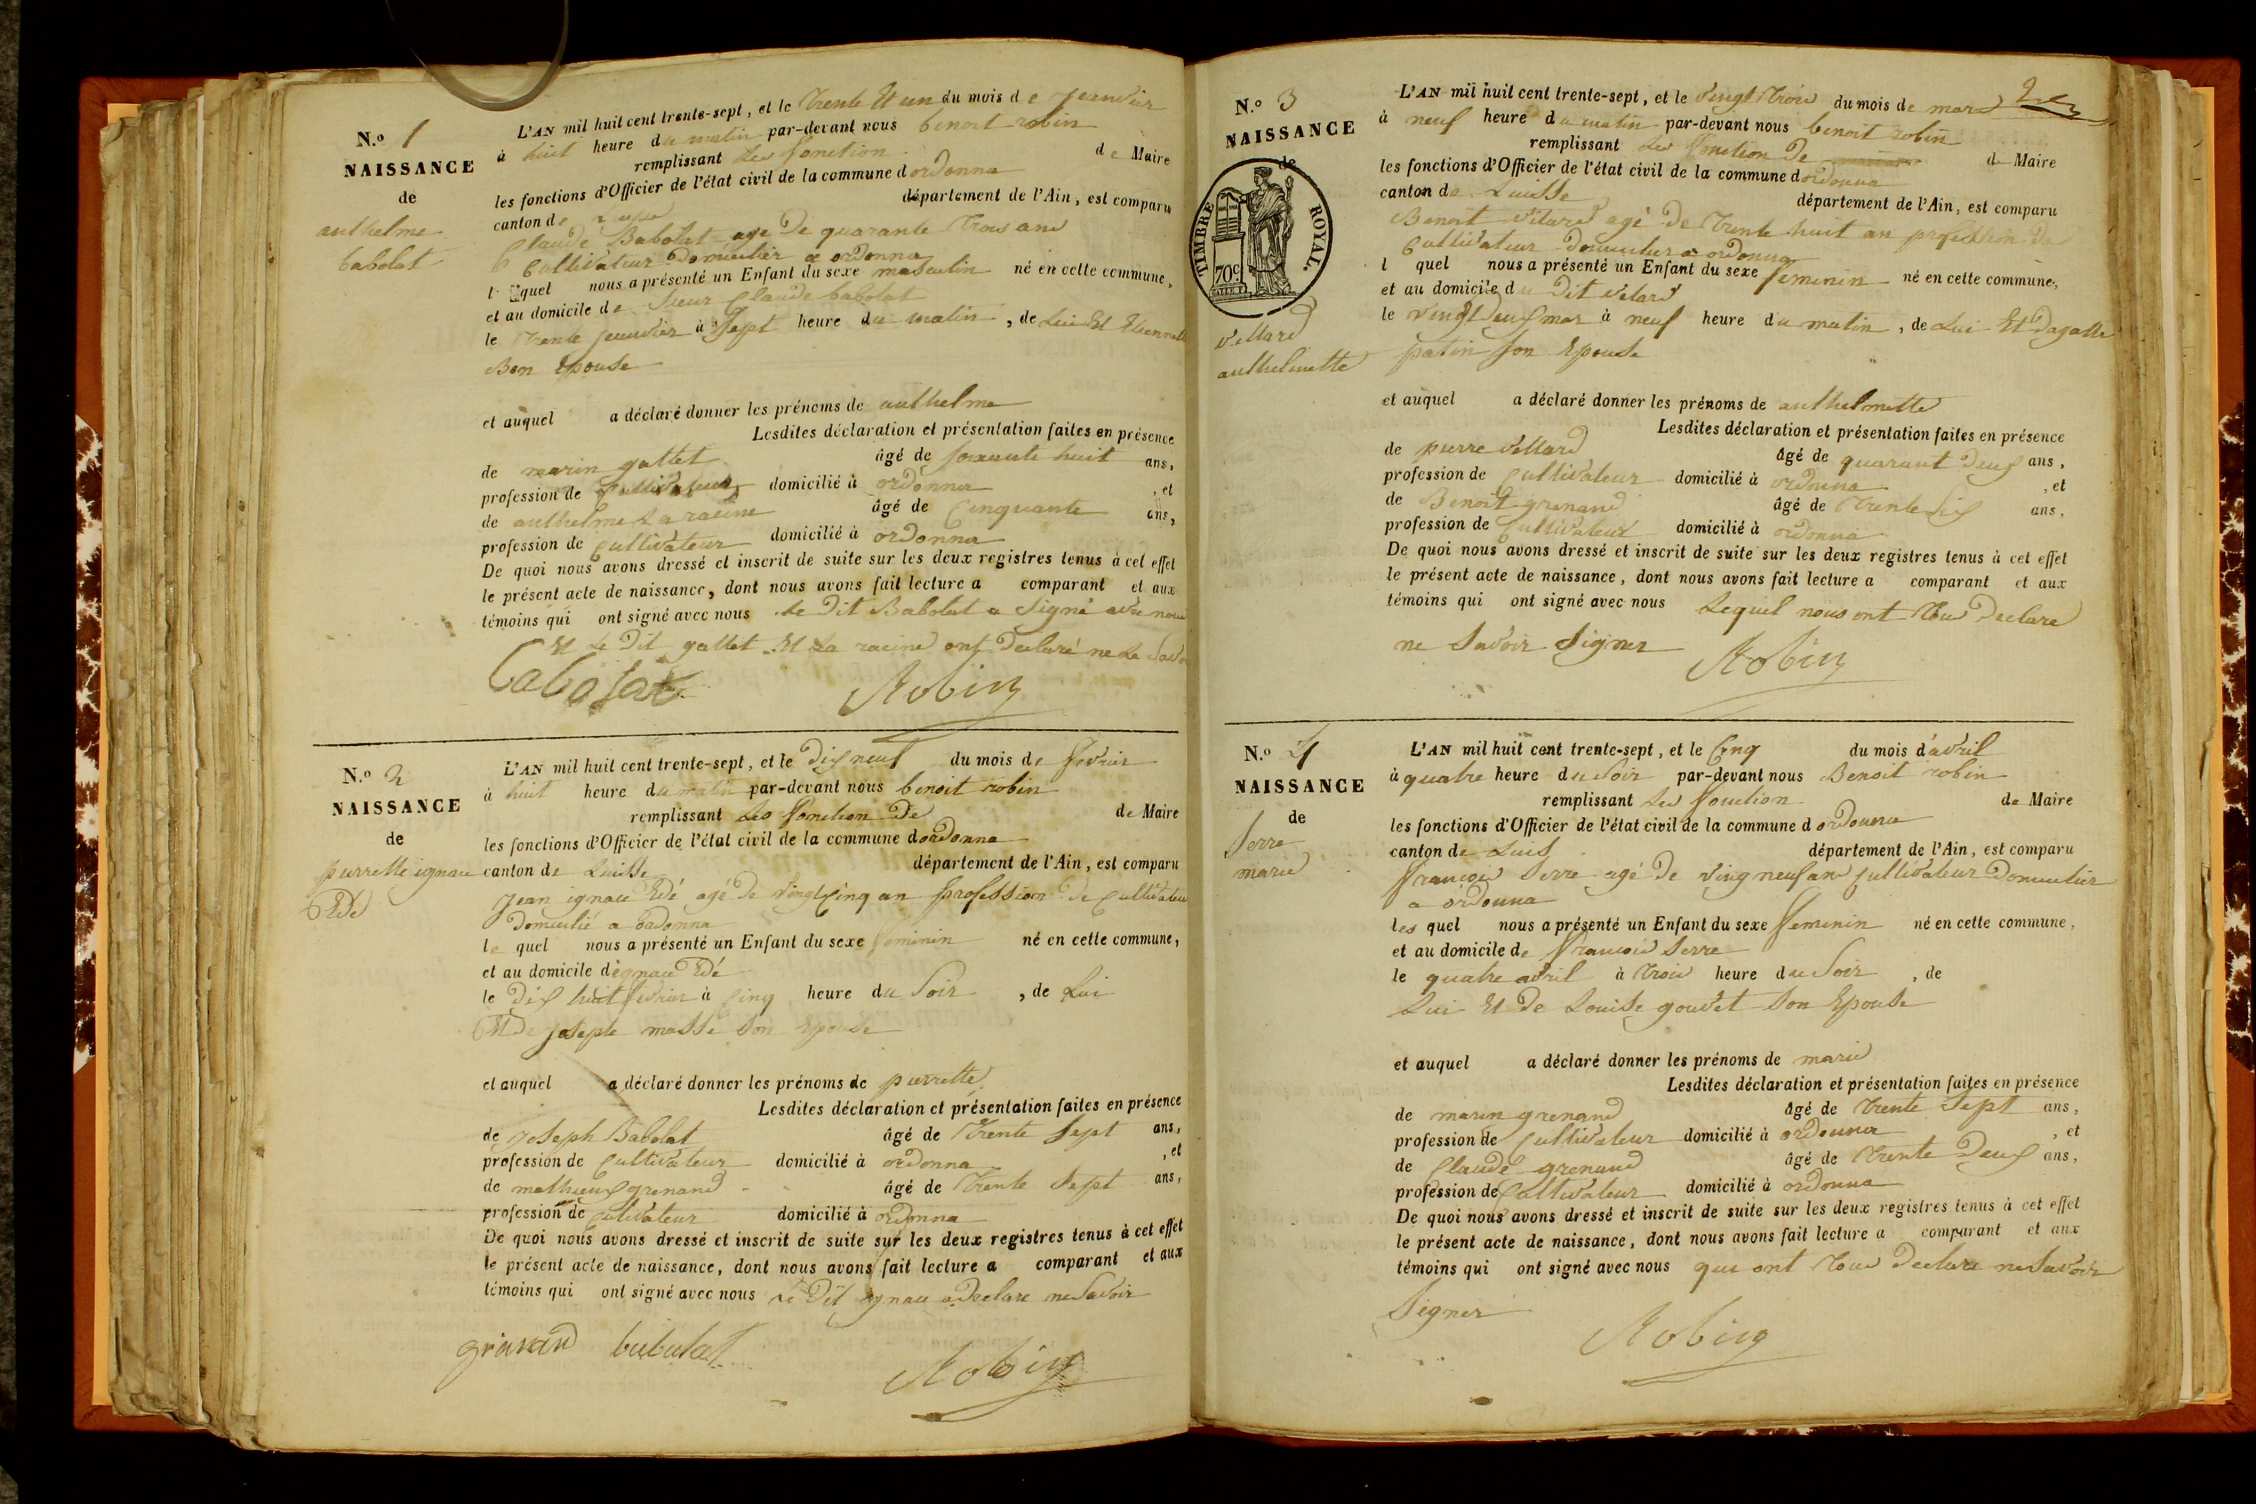 N.o 1
NAISSANCE
de
anthelme
babolat
L'AN mil huit cent trente-sept, et le trente Et un du mois de jeanvier
à huit heure du matin par-devant nous benoit robin
remplissant Les fonction de Maire
les fonctions d'Officier de l'état civil de la commune dordonna
canton de département de l'Ain, est comparu
Claude Babolat age de quarante trois ans
Cultivateur domicilier a ordonna
l quel nous a présenté un Enfant du sexe masculin né en cette commune,
et au domicile de Sieur Claude babolat
le trente jeanvier à Sept heure du matin, de Lui Et Etiennette
Bon Epouse
et auquel a déclaré donner les prénoms de anthelme
Lesdites déclaration et présentation faites en présence
de marin gallet âgé de soixante huit ans,
profession de Cultivateur domicilié à ordonna, et
de anthelme La racine âgé de Cinquante ans,
profession de Cultivateur domicilié à ordonna
De quoi nous avons dressé et inscrit de suite sur les deux registres tenus à cet effet
le présent acte de naissance, dont nous avons fait lecture a comparant et aux
témoins qui ont signé avec nous Le dit Babolat a Signé avec nous
Et Le dit gallet Et La racine ont declaré ne Le Savoir
Babolat Robin
N.o 2
NAISSANCE
de
pierrette ignace
Edé
L'AN mil huit cent trente-sept, et le dix neuf du mois de fevrier
à huit heure du matin par-devant nous benoit robin
remplissant Les fonction De de Maire
les fonctions d'Officier de l'état civil de la commune dordonna
canton de Luisse département de l'Ain, est comparu
Jean ignace Edé agé de vingt Cinq an profession de Cultivateur
domicilié a ordonna
le quel nous a présenté un Enfant du sexe feminin né en cette commune,
et au domicile d'ignace Edé
le dix huit fevrier à Cinq heure du Soir, de Lui
Et De josepte masse Son Epouse
et auquel a déclaré donner les prénoms de pierrette
Lesdites déclaration et présentation faites en présence
de Joseph Babolat âgé de trente Sept ans,
profession de Cultivateur domicilié à ordonna, et
de mathieux grenand âgé de trente Sept ans,
profession de Cultivateur domicilié à ordonna
De quoi nous avons dressé et inscrit de suite sur les deux registres tenus à cet effet
le présent acte de naissance, dont nous avons fait lecture a comparant et aux
témoins qui ont signé avec nous Le Dit ignace a Declare ne Savoir
grinand bubulat Robin
2
N.o 3
NAISSANCE
de
TIMBRE ROYAL.
70c
vettard
anthelmette
L'AN mil huit cent trente-sept, et le vingt trois du mois de mars
à neuf heure du matin par-devant nous benoit robin
remplissant Les fonction De de Maire
les fonctions d'Officier de l'état civil de la commune dordonna
canton de Luisse département de l'Ain, est comparu
Benoit vetard agé De trente huit an profession de
Cultivateur domicilier a ordonna
l quel nous a présenté un Enfant du sexe feminin né en cette commune,
et au domicile du Dit vetard
le vingt Deux mars à neuf heure du matin, de Lui Et dagatte
patin son Epouse
et auquel a déclaré donner les prénoms de anthelmette
Lesdites déclaration et présentation faites en présence
de pierre vettard âgé de quarant deux ans,
profession de Cultivateur domicilié à ordonna, et
de Benoit grenand âgé de trente Six ans,
profession de Cultivateur domicilié à ordonna
De quoi nous avons dressé et inscrit de suite sur les deux registres tenus à cet effet
le présent acte de naissance, dont nous avons fait lecture a comparant et aux
témoins qui ont signé avec nous Lequel nous ont tous Declare
ne Savoir Signer Robin
N.o 4
NAISSANCE
de
Serre
marie
L'AN mil huit cent trente-sept, et le Cinq du mois d'avril
à quatre heure du Soir par-devant nous Benoit robin
remplissant Les fonction de Maire
les fonctions d'Officier de l'état civil de la commune d ordonna
canton de Luis département de l'Ain, est comparu
françois Serre agé De vingt neuf an Cultivateur domicilier
a ordonna
les quel nous a présenté un Enfant du sexe feminin né en cette commune,
et au domicile de françois Serre
le quatre avril à trois heure du Soir, de
Lui Et De Louise gouvet Son Epouse
et auquel a déclaré donner les prénoms de marie
Lesdites déclaration et présentation faites en présence
de marin grenand âgé de trente Sept ans,
profession de Cultivateur domicilié à ordonna, et
de Claude grenand âgé de trente Deux ans,
profession de Cultivateur domicilié à ordonna
De quoi nous avons dressé et inscrit de suite sur les deux registres tenus à cet effet
le présent acte de naissance, dont nous avons fait lecture a comparant et aux
témoins qui ont signé avec nous qui ont tous Declare ne Savoir
Signer
Robin